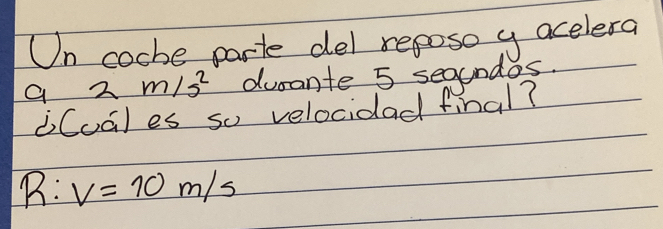 Un coche parte del reposo y acelera
a 2 m/s² durante 5 segundos.
¿Cuál es su velocidad final?
R: v = 10 m/s